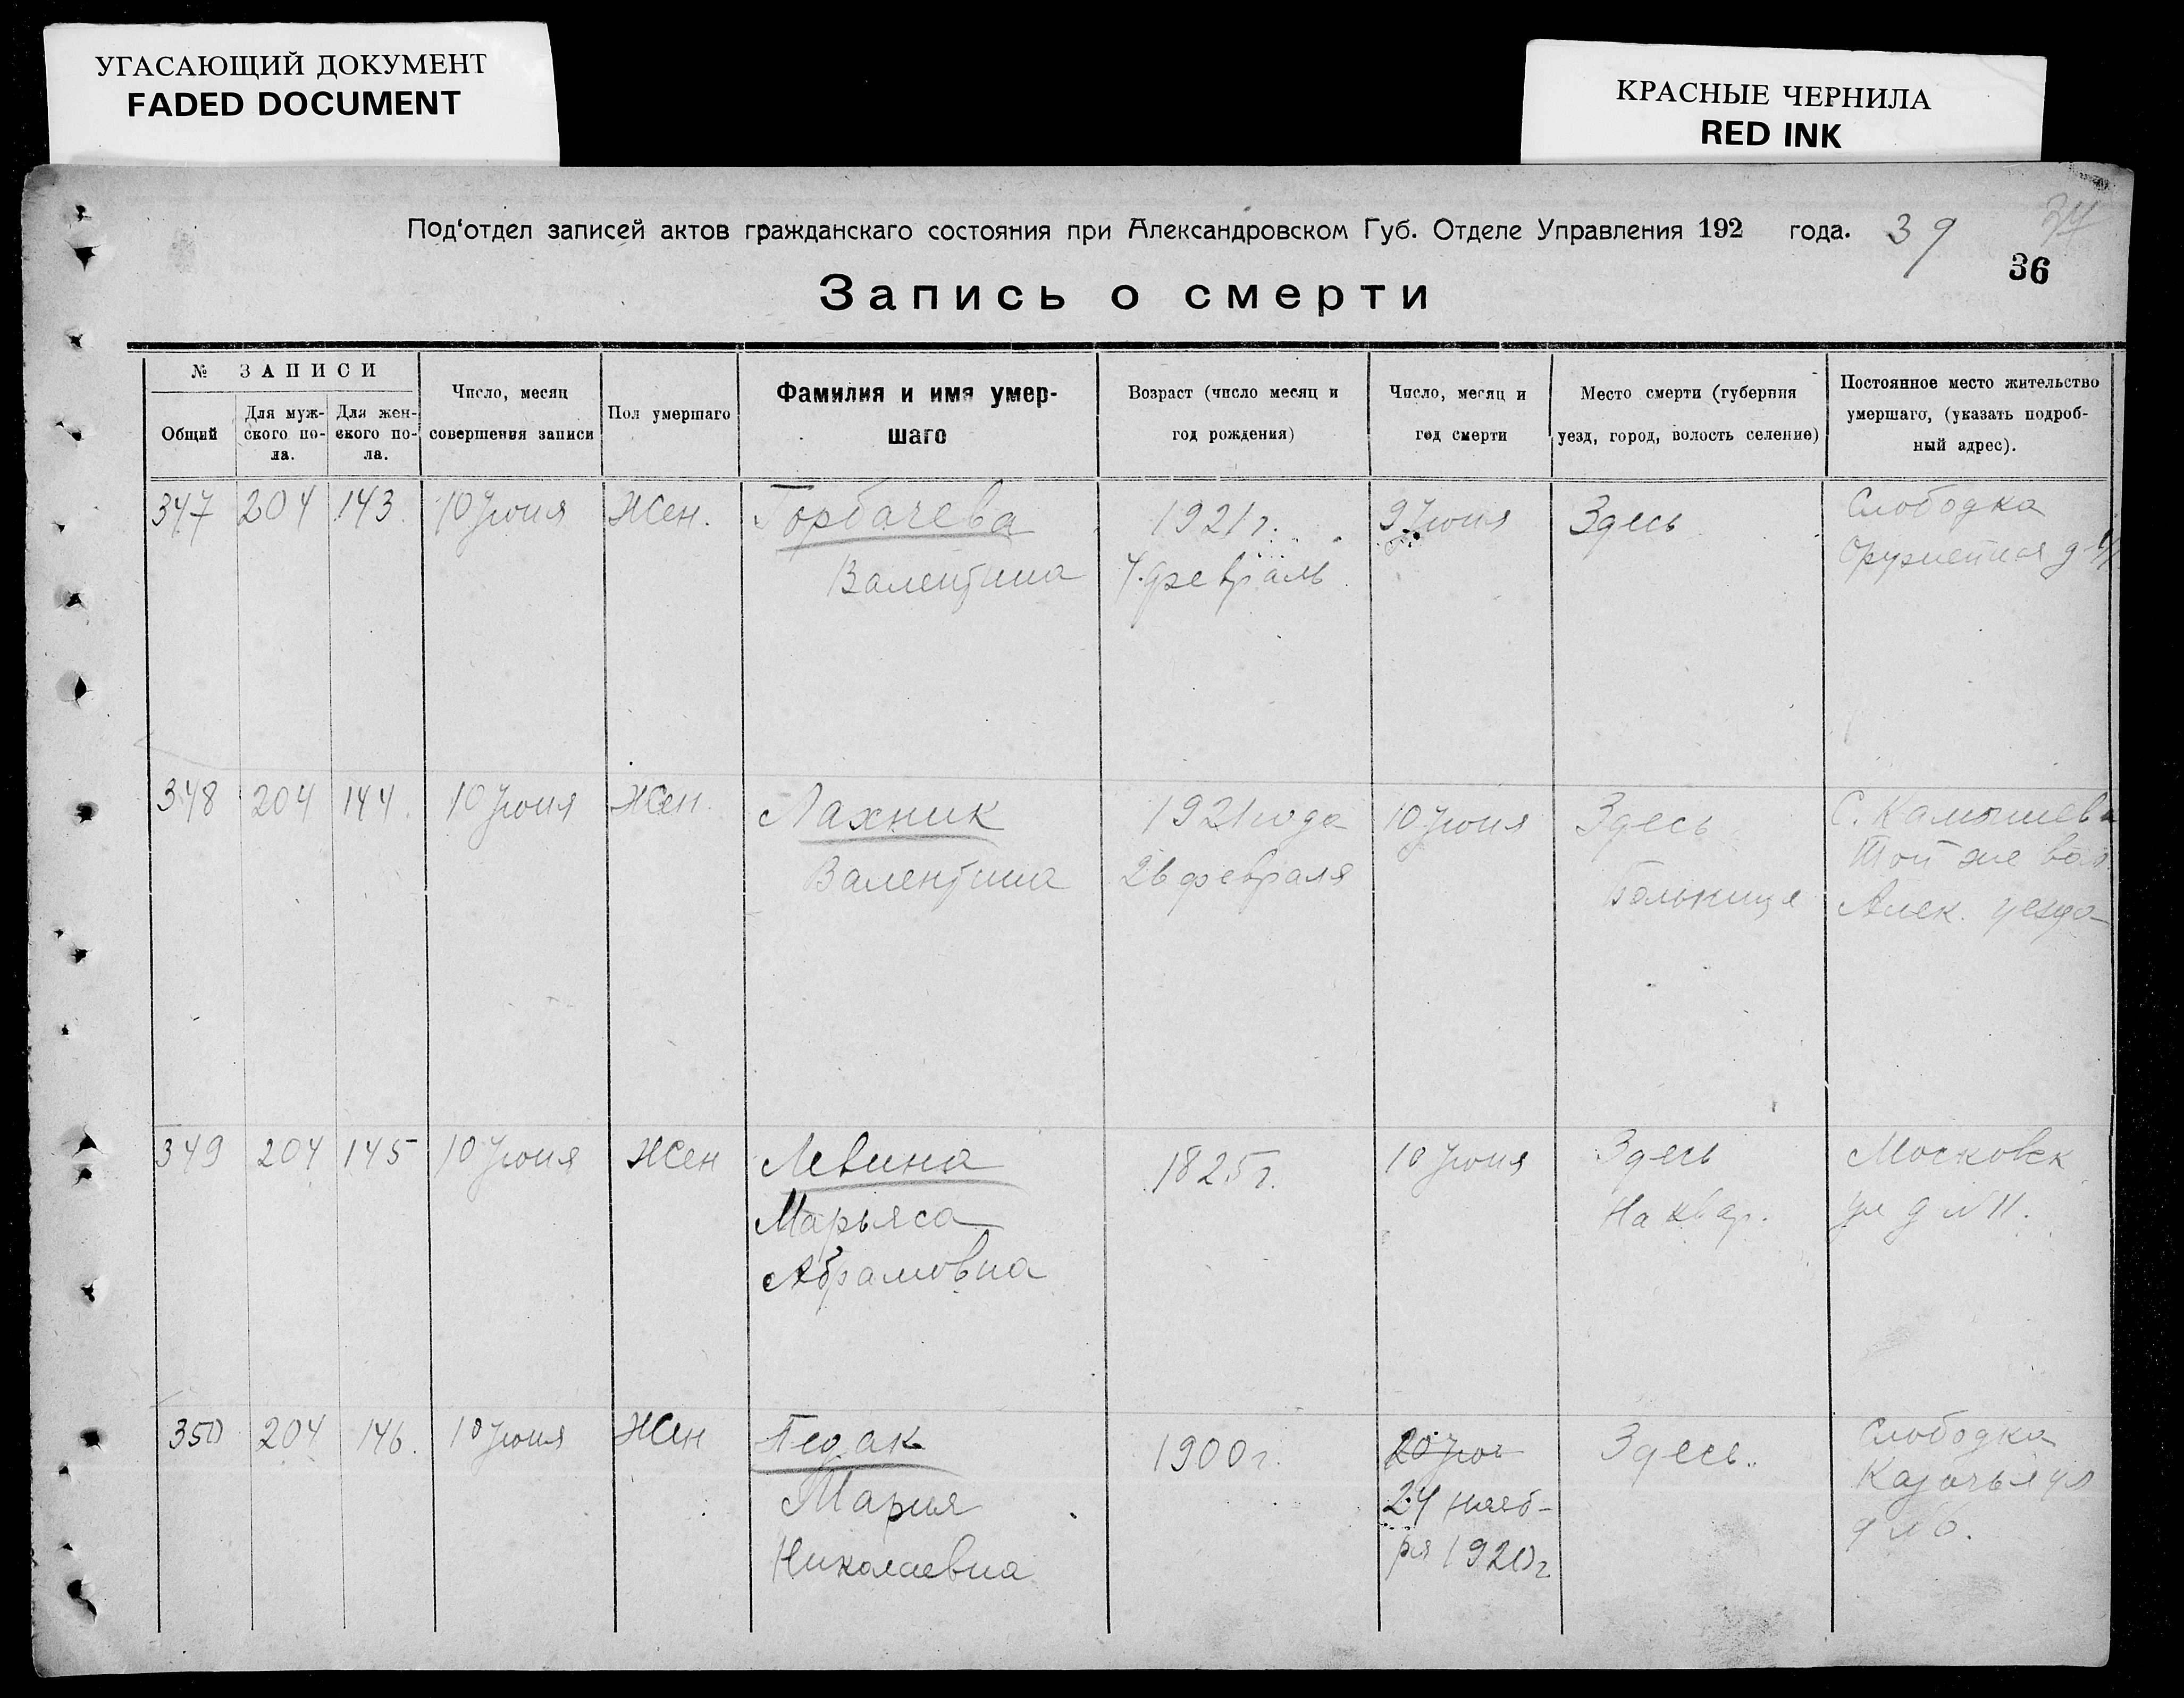 УГАСАЮЩИЙ ДОКУМЕНТ
FADED DOCUMENT
КРАСНЫЕ ЧЕРНИЛА
RED INK
Под'отдел записей актов гражданскаго состояния при Александровском Губ. Отделе Управления 192 года. 39
36
Запись о смерти
№ ЗАПИСИ
Общий
Для муж-
ского по-
ла.
Для жен-
ского по-
ла.
Число, месяц
совершения записи
Пол умершаго
Фамилия и имя умер-
шаго
Возраст (число месяц и
год рождения)
Число, месяц и
год смерти
Место смерти (губерния
уезд, город, волость селение)
Постоянное место жительство
умершаго, (указать подроб-
ный адрес).
347 204 143 10 Июня Жен. Горбачева 1921 г. 9 Июня Здесь Слободка
Валентина 4 февраль
348 204 144. 10 Июня Жен. Лахник 1921 года 10 Июня Здесь С.
Валентина 26 февраля Больнице Той же вол.
Алек. уезда
349 204 145 10 Июня Жен Левина 1825 г. 10 Июня Здесь Московск
Марьяса На квар. ул д №11.
Абрамовна
350 204 146. 10 Июня Жен 1900 г. Здесь. Слободка
Мария 24 нояб- Казачья ул
Николаевна ря 1920 г.